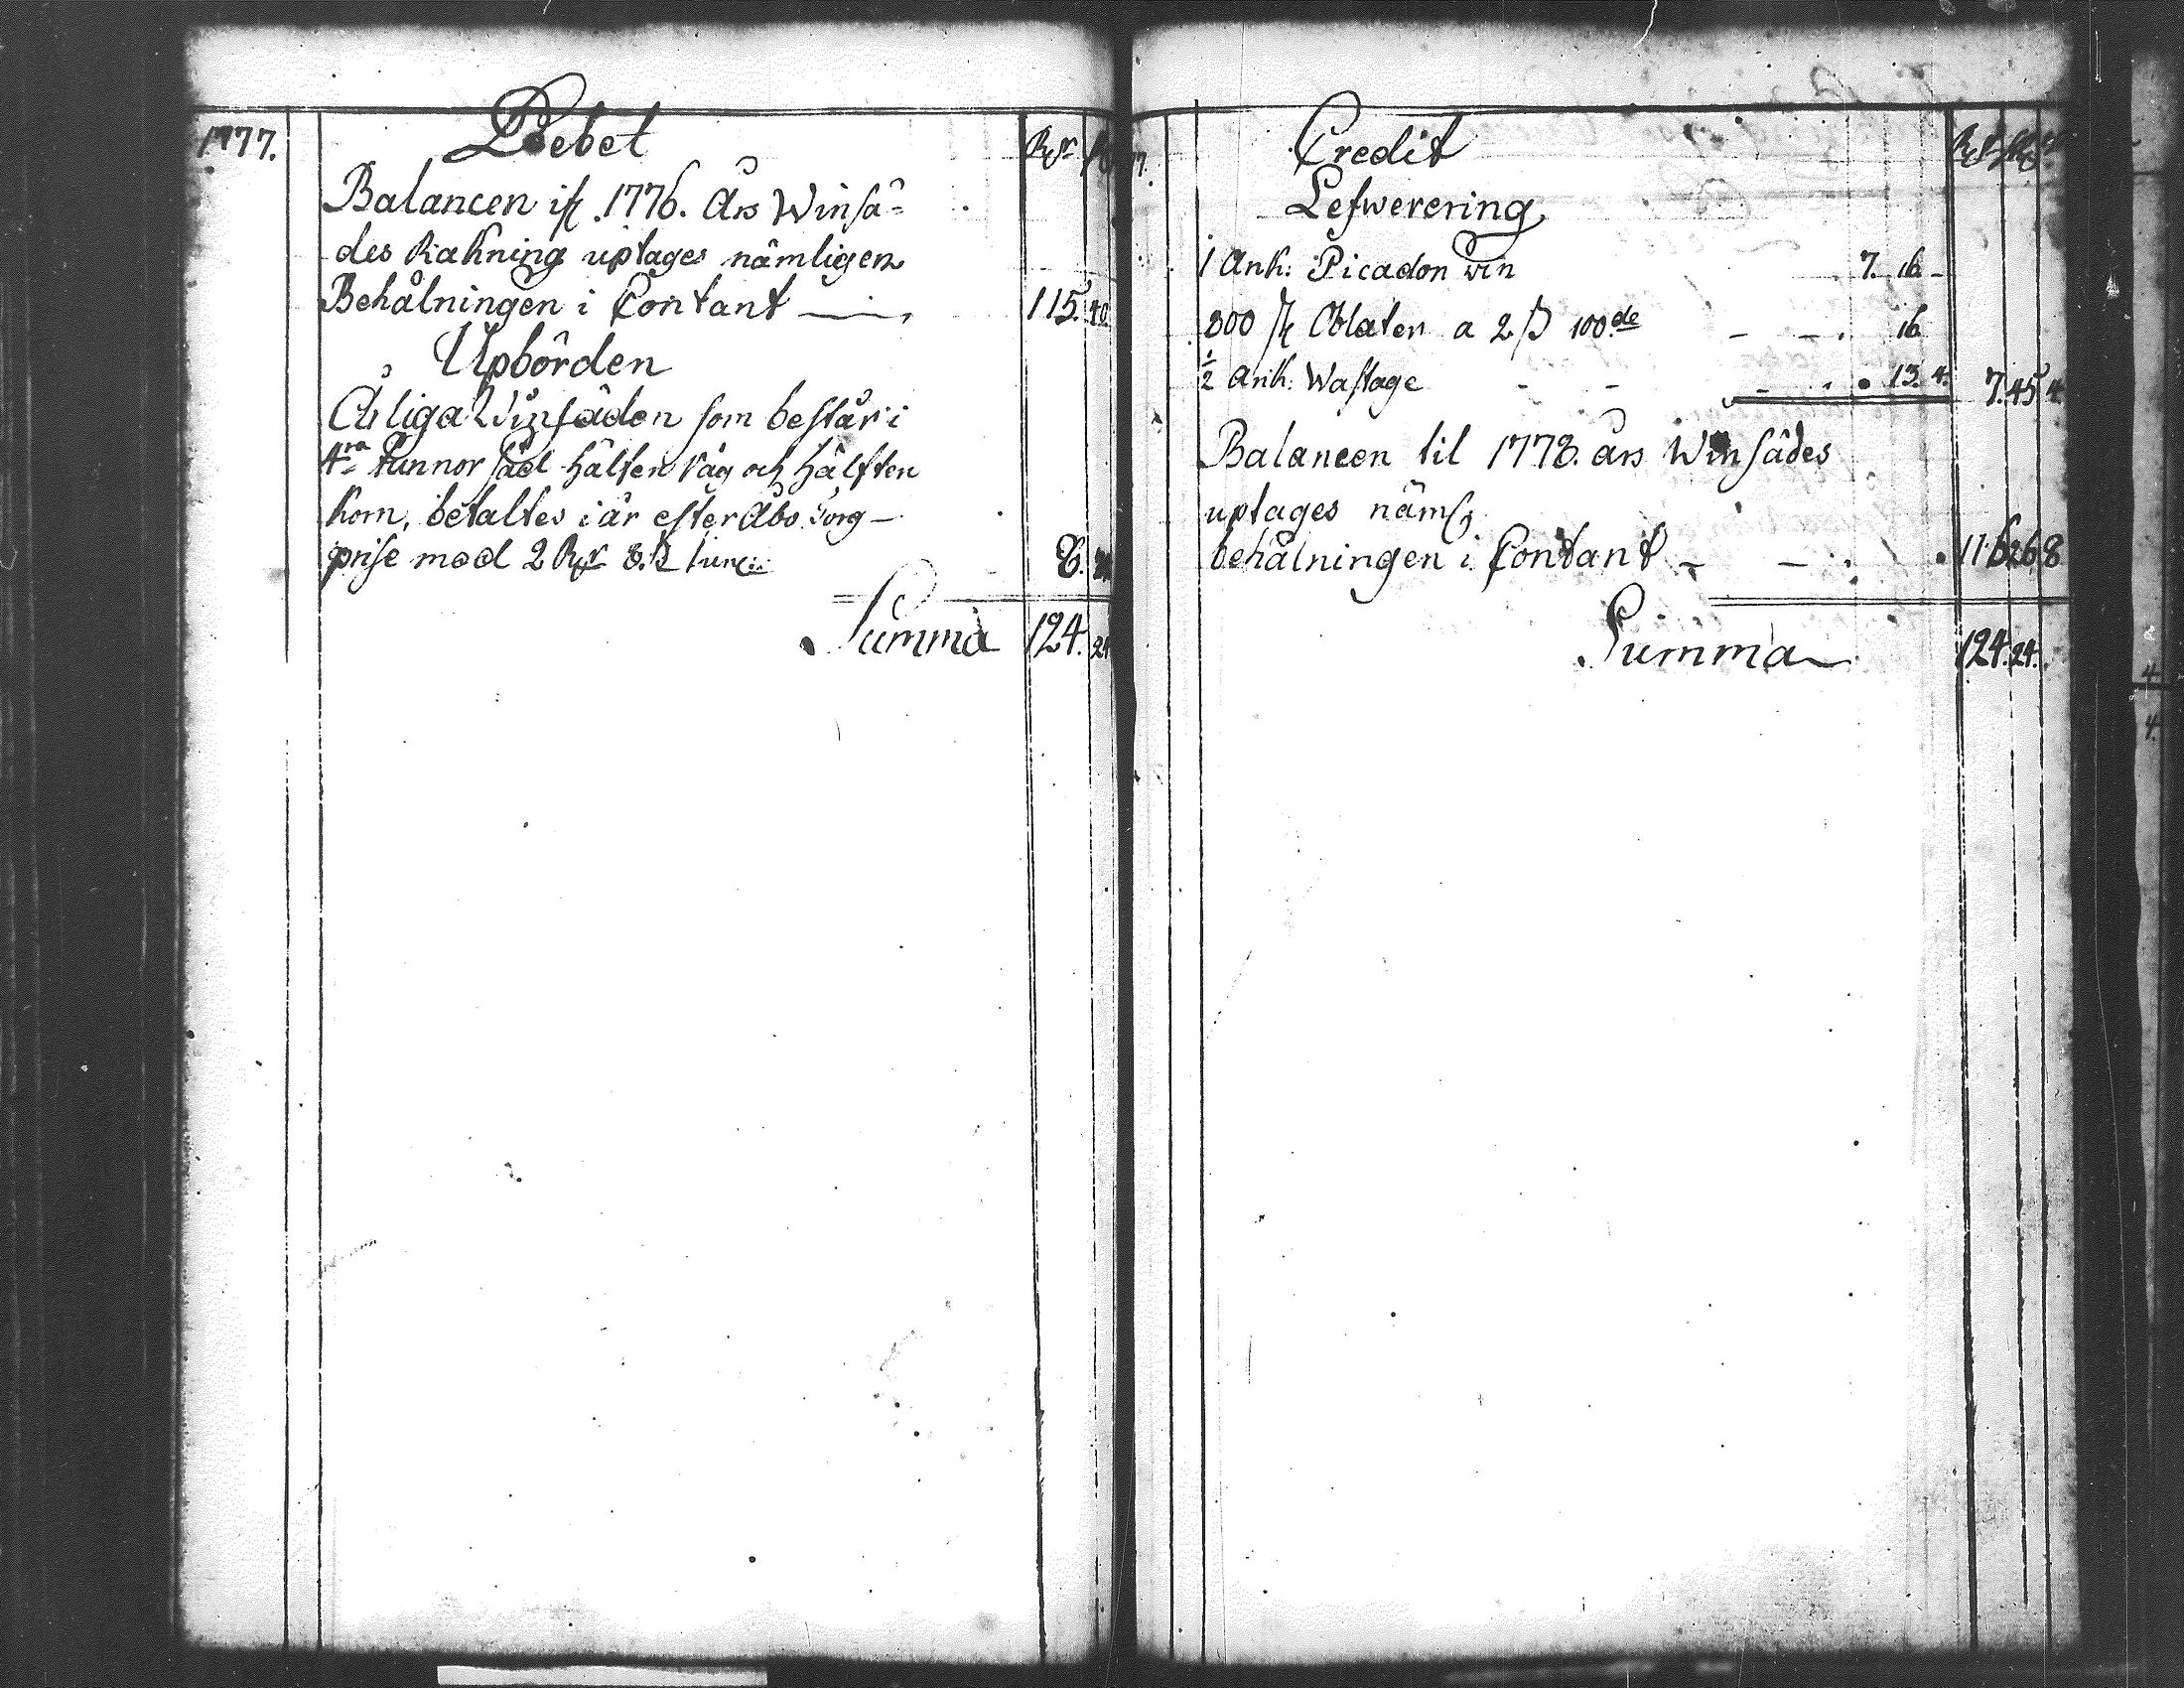 1777.
Debet
Rdr
Balancen ifr. 1776. Års Winsä=
des Räkning uptages nämligen
Behålningen i Contant 115. 40
Upbörden
Årliga Winsäden som består i
4ra Tunnor säd hälften råg och hälften
korn, betaltes i år efter Åbo Torg-
prise med 2 Rdr 8. ß 8.
Summa 124. 24
77.
Credit
Lefwerering
1 Ank: Picadon win 7. 16 -
800 st Oblater a 2 ß 100de - - . 16
1/2 Ank: Wastage - - - . 13. 4. 7. 45 4
Balancen til 1778. års Winsädes
uptages näml
behålningen i Contant - - . 116 26 8
Summa 124. 24.
4
4.